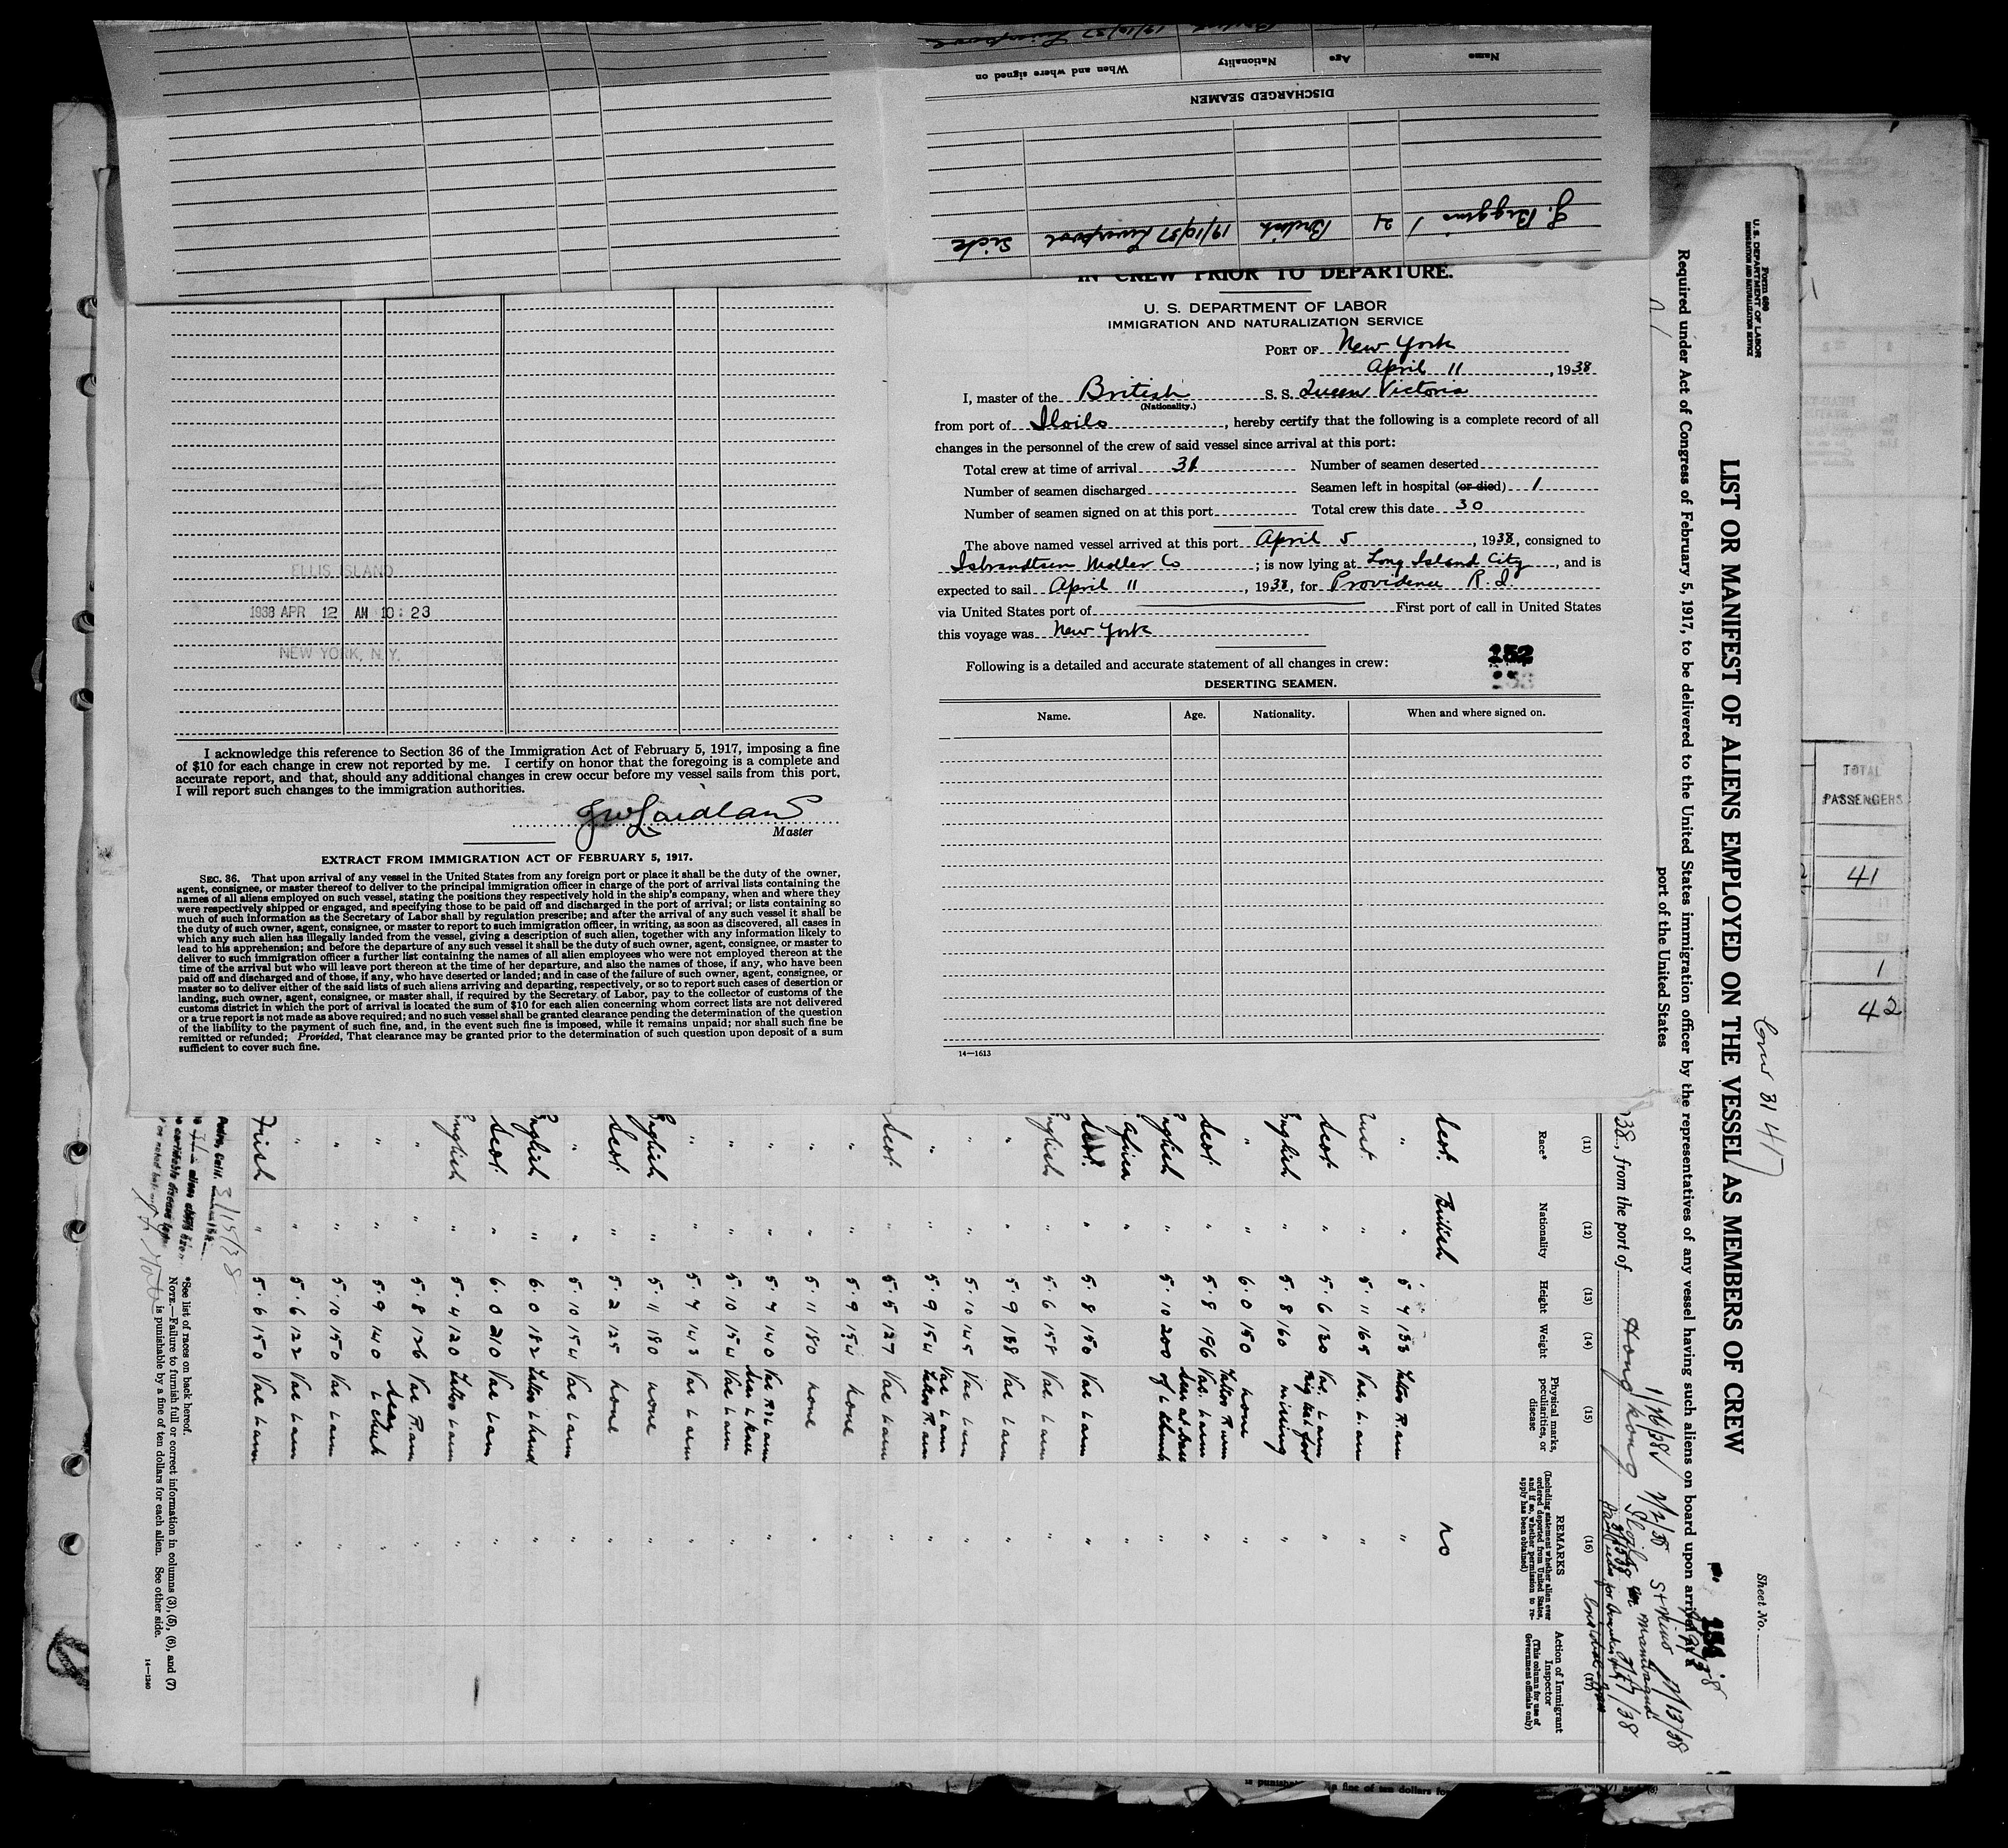 DISCHARGED SEAMEN
Name Age Nationality When and where signed on
19/10/37 Liverpool
J. Biggins 21 British 19/10/37 Liverpool Sick
IN CREW PRIOR TO DEPARTURE.
U. S. DEPARTMENT OF LABOR
IMMIGRATION AND NATURALIZATION SERVICE
PORT OF New York
April 11, 1938
I, master of the British S. S. Queen Victoria
(Nationality.)
from port of Iloilo, hereby certify that the following is a complete record of all
changes in the personnel of the crew of said vessel since arrival at this port:
Total crew at time of arrival 31 Number of seamen deserted
Number of seamen discharged Seamen left in hospital (or died) 1
Number of seamen signed on at this port Total crew this date 30
The above named vessel arrived at this port April 5, 1938, consigned to
Isbrandtsen Moller Co; is now lying at Long Island City, and is
expected to sail April 11, 1938, for Providence R. I.
via United States port of First port of call in United States
this voyage was New York
Following is a detailed and accurate statement of all changes in crew:
152
DESERTING SEAMEN.
Name. Age. Nationality. When and where signed on.
14—1613
ELLIS ISLAND
1938 APR 12 AM 10:23
NEW YORK, N. Y.
I acknowledge this reference to Section 36 of the Immigration Act of February 5, 1917, imposing a fine
of $10 for each change in crew not reported by me. I certify on honor that the foregoing is a complete and
accurate report, and that, should any additional changes in crew occur before my vessel sails from this port,
I will report such changes to the immigration authorities.
J W Laidlaw
Master
EXTRACT FROM IMMIGRATION ACT OF FEBRUARY 5, 1917.
SEC. 36. That upon arrival of any vessel in the United States from any foreign port or place it shall be the duty of the owner,
agent, consignee, or master thereof to deliver to the principal immigration officer in charge of the port of arrival lists containing the
names of all aliens employed on such vessel, stating the positions they respectively hold in the ship's company, when and where they
were respectively shipped or engaged, and specifying those to be paid off and discharged in the port of arrival; or lists containing so
much of such information as the Secretary of Labor shall by regulation prescribe; and after the arrival of any such vessel it shall be
the duty of such owner, agent, consignee, or master to report to such immigration officer, in writing, as soon as discovered, all cases in
which any such alien has illegally landed from the vessel, giving a description of such alien, together with any information likely to
lead to his apprehension; and before the departure of any such vessel it shall be the duty of such owner, agent, consignee, or master to
deliver to such immigration officer a further list containing the names of all alien employees who were not employed thereon at the
time of the arrival but who will leave port thereon at the time of her departure, and also the names of those, if any, who have been
paid off and discharged and of those, if any, who have deserted or landed; and in case of the failure of such owner, agent, consignee, or
master so to deliver either of the said lists of such aliens arriving and departing, respectively, or so to report such cases of desertion or
landing, such owner, agent, consignee, or master shall, if required by the Secretary of Labor, pay to the collector of customs of the
customs district in which the port of arrival is located the sum of $10 for each alien concerning whom correct lists are not delivered
or a true report is not made as above required; and no such vessel shall be granted clearance pending the determination of the question
of the liability to the payment of such fine, and, in the event such fine is imposed, while it remains unpaid; nor shall such fine be
remitted or refunded; Provided, That clearance may be granted prior to the determination of such question upon deposit of a sum
sufficient to cover such fine.
Form 680
U. S. DEPARTMENT OF LABOR
IMMIGRATION AND NATURALIZATION SERVICE
Sheet No.
Crew 31 41
LIST OR MANIFEST OF ALIENS EMPLOYED ON THE VESSEL AS MEMBERS OF CREW
Required under Act of Congress of February 5, 1917, to be delivered to the United States immigration officer by the representatives of any vessel having such aliens on board upon arrival at a
port of the United States
38, from the port of Hong Kong
(11) (12) (13) (14) (15) (16) (17)
Race* Nationality Height Weight Physical marks, peculiarities, or disease
REMARKS (Including statement whether alien ever ordered deported from United States, and if so, whether permission to reapply has been obtained)
Action of Immigrant Inspector (This column for use of Government officials only)
Scot. British no
" " 5.4 133 Tattoo R arm "
" 5.11 165 Vac. L. arm
Scot " 5.6 130 Vac. L arm "
English " 5.8 160 missing "
" " 6.0 150 none "
Scot. " 5.8 196 Vac. L arm Tattoo R arm "
English " 5.10 200 of L thumb "
Africa " "
Scot. " 5.8 150 Vac L arm "
English " 5.6 158 Vac L arm "
" " 5.9 138 Vac L arm "
" " 5.10 145 Vac L arm "
" " 5.9 154 Vac L arm Tattoo R. arm "
Scot " 5.5 127 Vac L arm "
" " 5.9 154 none "
" " 5.11 180 none "
" " 5.4 140 Vac R & L arm "
" " 5.10 154 Vac L arm "
" " 5.4 143 Vac L arm "
English " 5.11 180 none "
Scot. " 5.2 125 none "
" " 5.10 154 Vac L arm "
English " 6.0 182 Tattoo L hand "
Scot. " 6.0 210 Vac L arm "
English " 5.4 120 Tattoo L arm "
" " 5.8 126 Vac R. arm "
" " 5.9 140 Scar L cheek "
" " 5.10 150 Vac L arm "
" " 5.6 122 Vac L arm "
Irish " 5.6 150 Vac L arm "
*See list of races on back hereof.
NOTE.—Failure to furnish full or correct information in columns (3), (5), (6), and (7)
is punishable by a fine of ten dollars for each alien. See other side.
14—1240
TOTAL
PASSENGERS
41
1
42